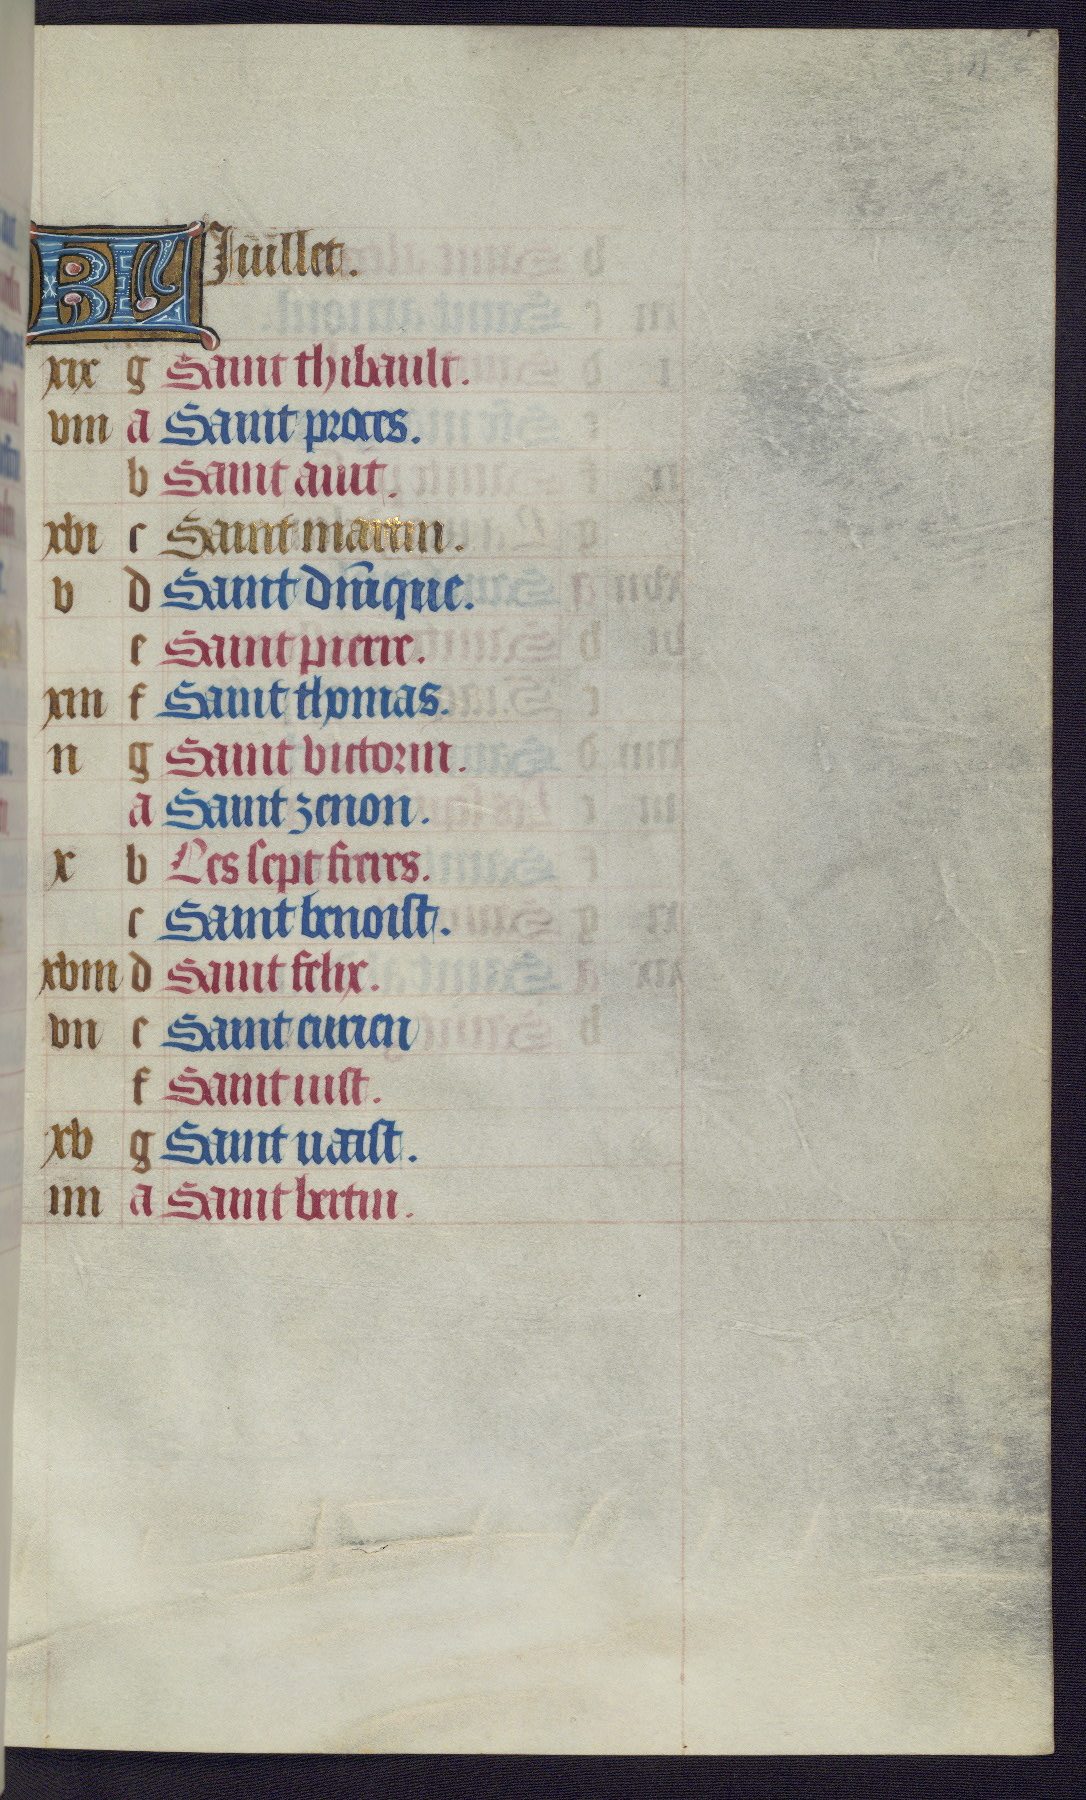 KL Juillet.
xix g Saint thibault.
viii a Saint proces.
b Saint aint.
xvi c Saint martin.
v d Saint dñique.
e Saint pierre.
xiii f Saint thomas.
ii g Saint victorin.
a Saint zenon.
x b Les sept freres.
c Saint benoist.
xviii d Saint felix.
vii e Saint
f Saint iust.
xv g Saint uaast.
iiii a Saint bertin.